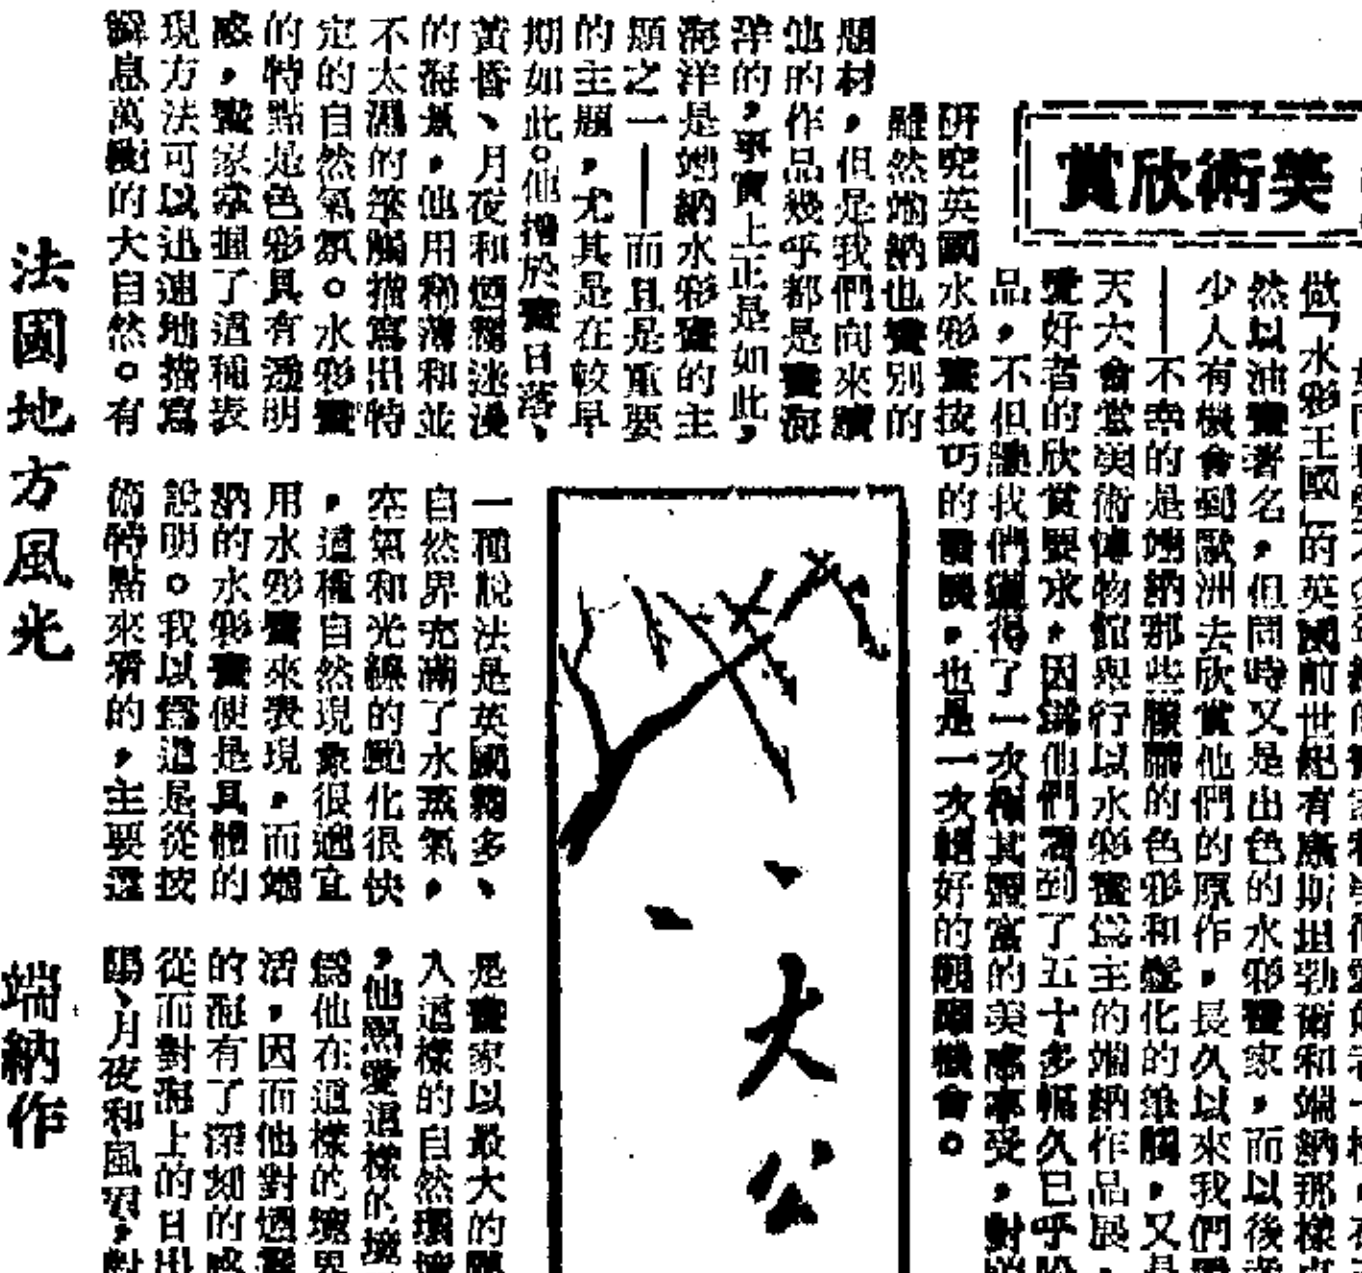 美術欣賞
做「水彩王國」的英國前世紀有康斯坦勃術和端納那樣
然以油畫著名，但同時又是出色的水彩畫家，而以後
少人有機會到歐洲去欣賞他們的原作，長久以來我們
——不幸的是端納那些朦朧的色彩和變化的筆觸，又是
天大會堂美術博物館舉行以水彩畫爲主的端納作品展，
愛好者的欣賞要求，因爲他們看到了五十多幅久已乎
品，不但讓我們獲得了一次極其豐富的美感享受，對
研究英國水彩畫技巧的發展，也是一次絕好的觀摩機會。
雖然端納也畫別的
題材，但是我們向來讀
他的作品幾乎都是畫海
洋的，事實上正是如此，
海洋是端納水彩畫的主
題之一——而且是重要
的主題，尤其是在較早
期如此。他擅於畫日落、
黃昏、月夜和煙霧迷漫
的海景，他用稀薄和並
不太濕的筆觸描寫出特
定的自然氣氛。水彩畫
的特點是色彩具有透明
感，畫家掌握了這種表
現方法可以迅速地描寫
瞬息萬變的大自然。有
一種說法是英國霧多、
自然界充滿了水蒸氣，
空氣和光線的變化很快
，這種自然現象很適宜
用水彩畫來表現，而端
納的水彩畫便是具體的
說明。我以爲這是從技
術特點來看的，主要還
是畫家以最大的
入這樣的自然環境
，他熱愛這樣的境
爲他在這樣的境界
活，因而他對煙霧
的海有了深刻的感
從而對海上的日出
陽、月夜和風雲，對
大公
法國地方風光
端納作